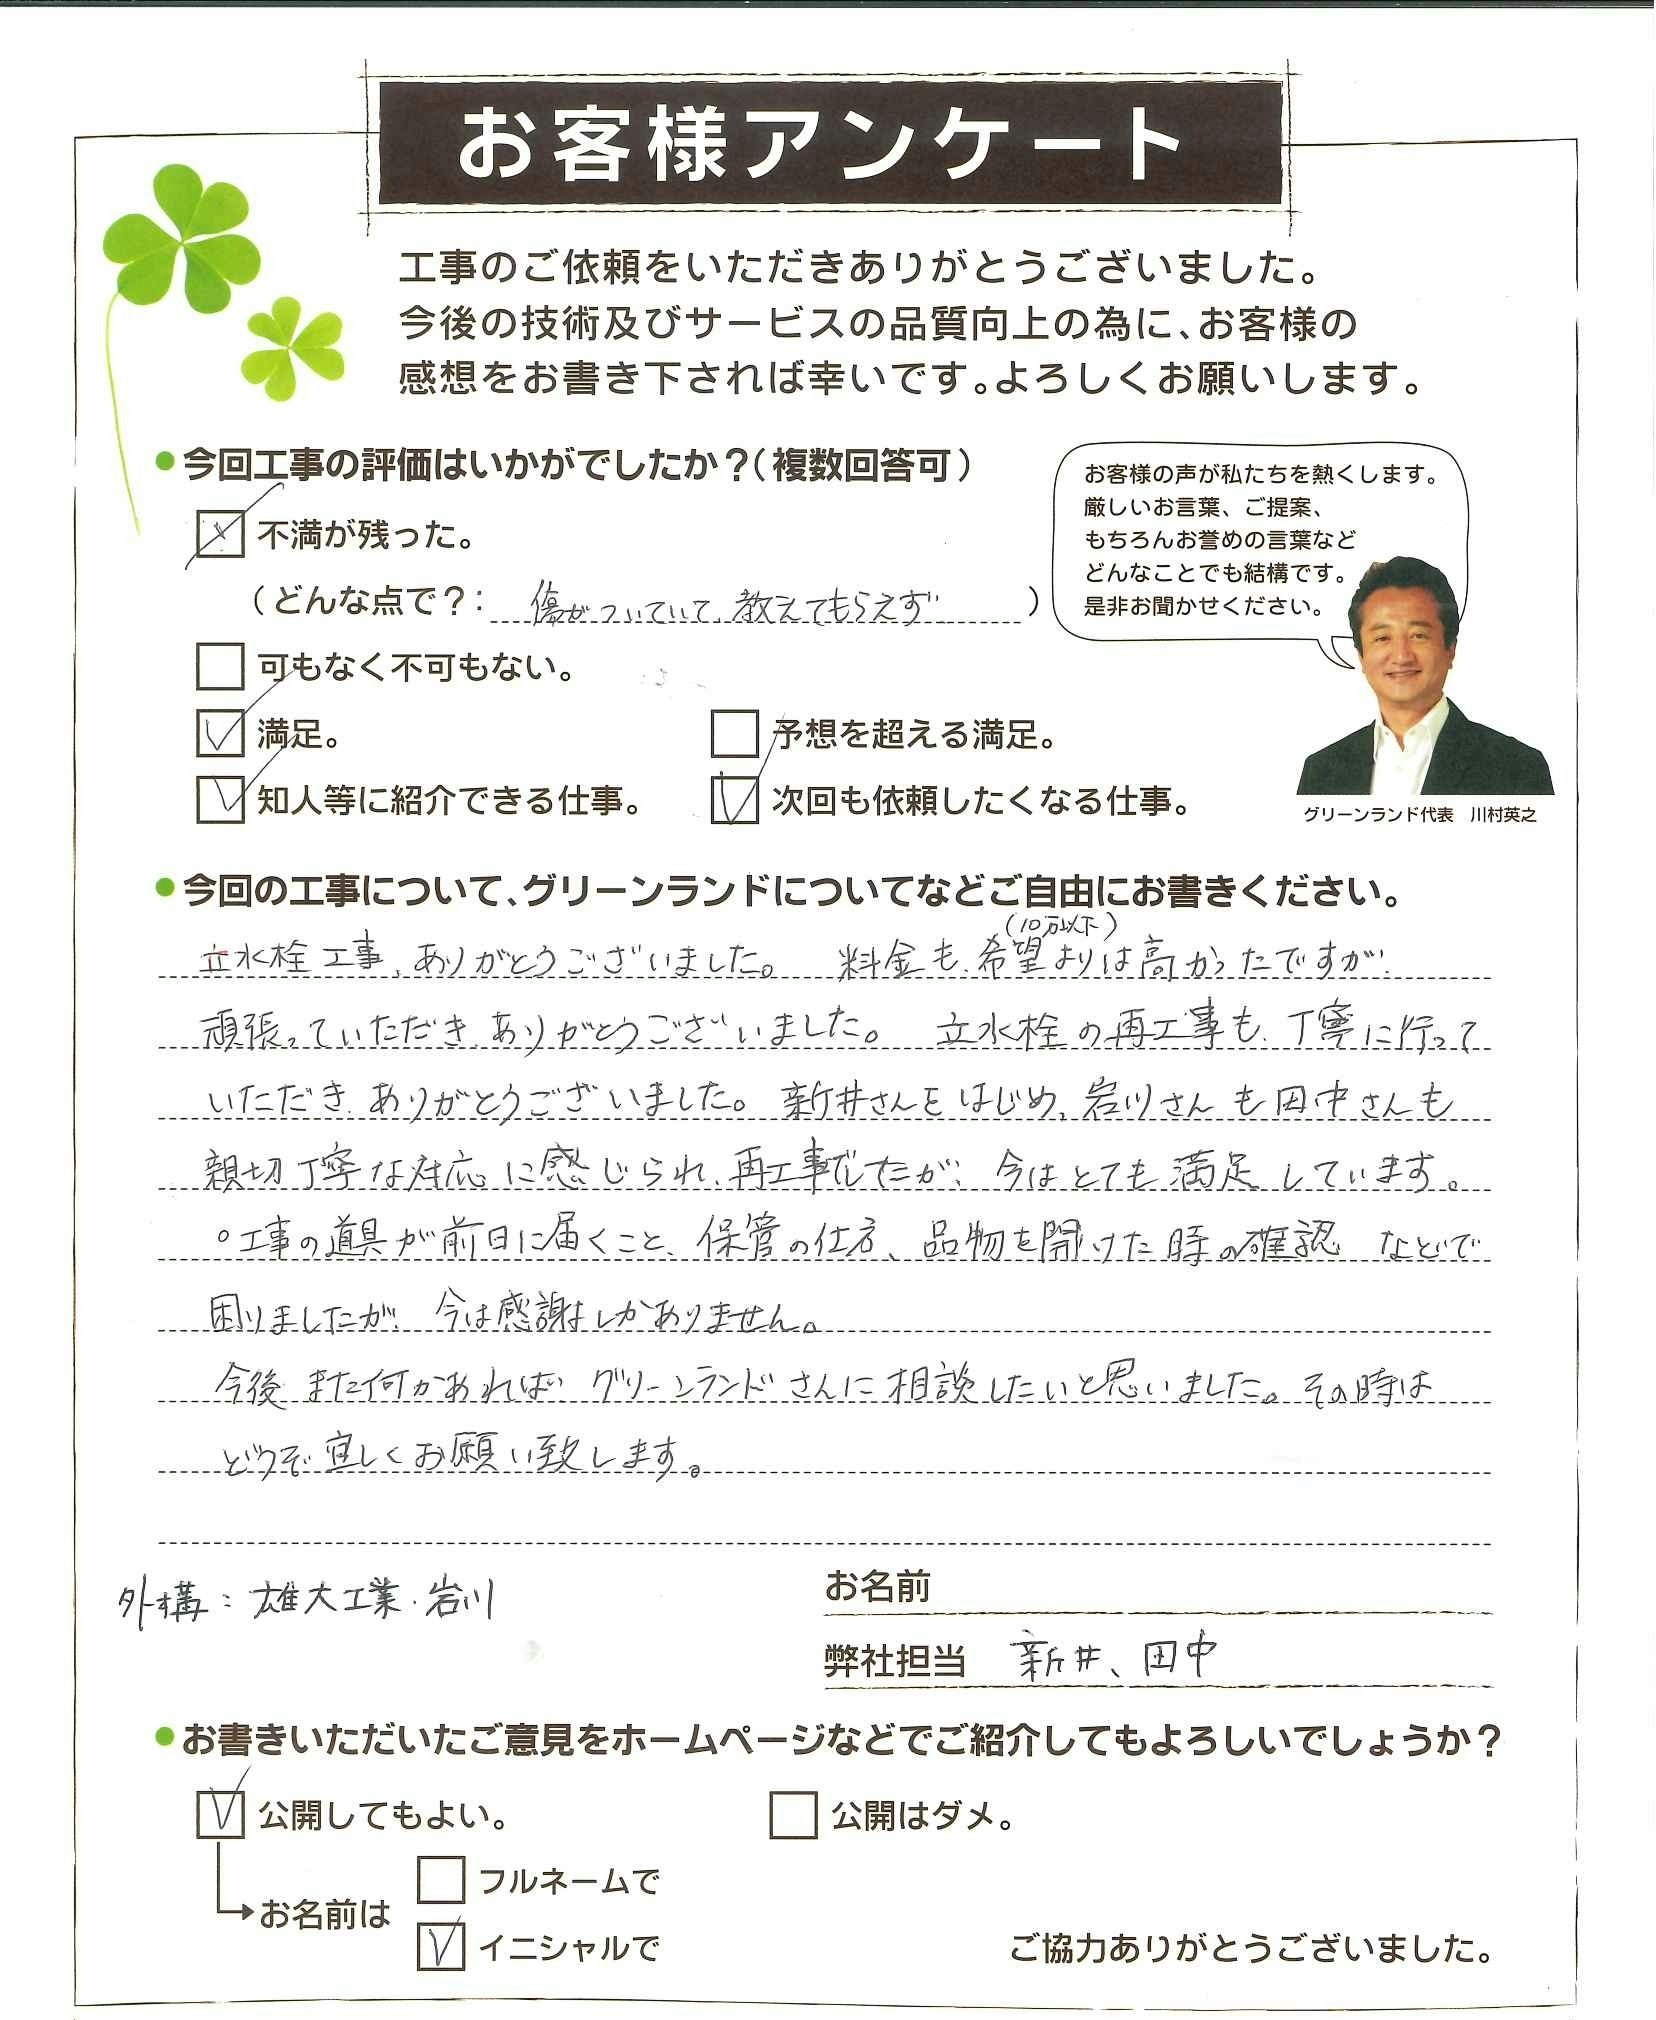 お客様アンケート
工事のご依頼をいただきありがとうございました。
今後の技術及びサービスの品質向上の為に、お客様の
感想をお書き下されば幸いです。よろしくお願いします。
●今回工事の評価はいかがでしたか？（複数回答可）
不満が残った。
（どんな点で？： 傷がついていて、教えてもらえず ）
可もなく不可もない。
満足。
予想を超える満足。
知人等に紹介できる仕事。
次回も依頼したくなる仕事。
お客様の声が私たちを熱くします。
厳しいお言葉、ご提案、
もちろんお誉めの言葉など
どんなことでも結構です。
是非お聞かせください。
グリーンランド代表　川村英之
●今回の工事について、グリーンランドについてなどご自由にお書きください。
（10万以下）
立水栓工事、ありがとうございました。 料金も、希望よりは高かったですが、
頑張っていただき、ありがとうございました。 立水栓の再工事も、丁寧に行って
いただき、ありがとうございました。新井さんをはじめ、岩川さんも田中さんも
親切丁寧な対応に感じられ、再工事でしたが、今はとても満足しています。
○工事の道具が前日に届くこと、保管の仕方、品物を開けた時の確認 などで
困りましたが、今は感謝しかありません。
今後また何かあれば、グリーンランドさんに相談したいと思いました。その時は
どうぞ宜しくお願い致します。
外構：雄大工業・岩川
お名前
弊社担当 新井、田中
●お書きいただいたご意見をホームページなどでご紹介してもよろしいでしょうか？
公開してもよい。
公開はダメ。
お名前は
フルネームで
イニシャルで
ご協力ありがとうございました。